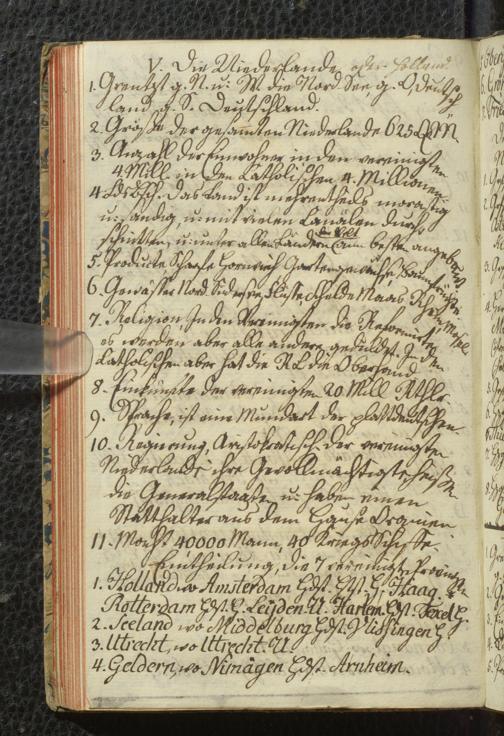 V. Die Niederlande oder Holland
1. Grentzt g. N. u. W. die Nord See g. O Deutsch
land g. S. Deutschland.
2. Größe der gesamten Niederlande 625 QM
3. Anzahl der Einwohner in den vereinigten
4 Mill in den Catholischen 4. Millionen
4. Das Land ist mehrentheils morastig
u. sandig, u. mit vielen Canälen durch
schnitten, u. unter allen Ländern am beste angebaut
der Welt
5. Producte Schaafe Hornvieh Gartengewächse Baumfrüchte
6. Gewässer Nord. Süder See Flüsse Schelde Maas Rhein Mosel
7. Religion, In den Vereinigten die Reformirte
es werden aber alle andere geduldt. In den
Catholischen aber hat die RC die Oberhand
8. Einkünfte der vereinigten 20 Mill Rthlr
9. Sprache, ist eine Mundart der plattdeutschen
10. Regierung, Aristokratisch der vereinigten
Niederlande ihre Gevollmächtigte heißen
die Generalstaaten u. haben einen
Statthalter aus dem Hause Oranien
11. Macht 40000 Mann, 40 Kriegs Schiffe.
Eintheilung, die 7 vereinigten Provinzen
1. Holland wo Amsterdam Hdst. Hst. L. Haag.
Rotterdam Hst. L. Leyden U. Harlem Hst. Texel
2. Seeland wo Middelburg Hdst. Vlissingen
3. Utrecht, wo Utrecht. U.
4. Geldern, wo Nimägen Hdst. Arnheim.